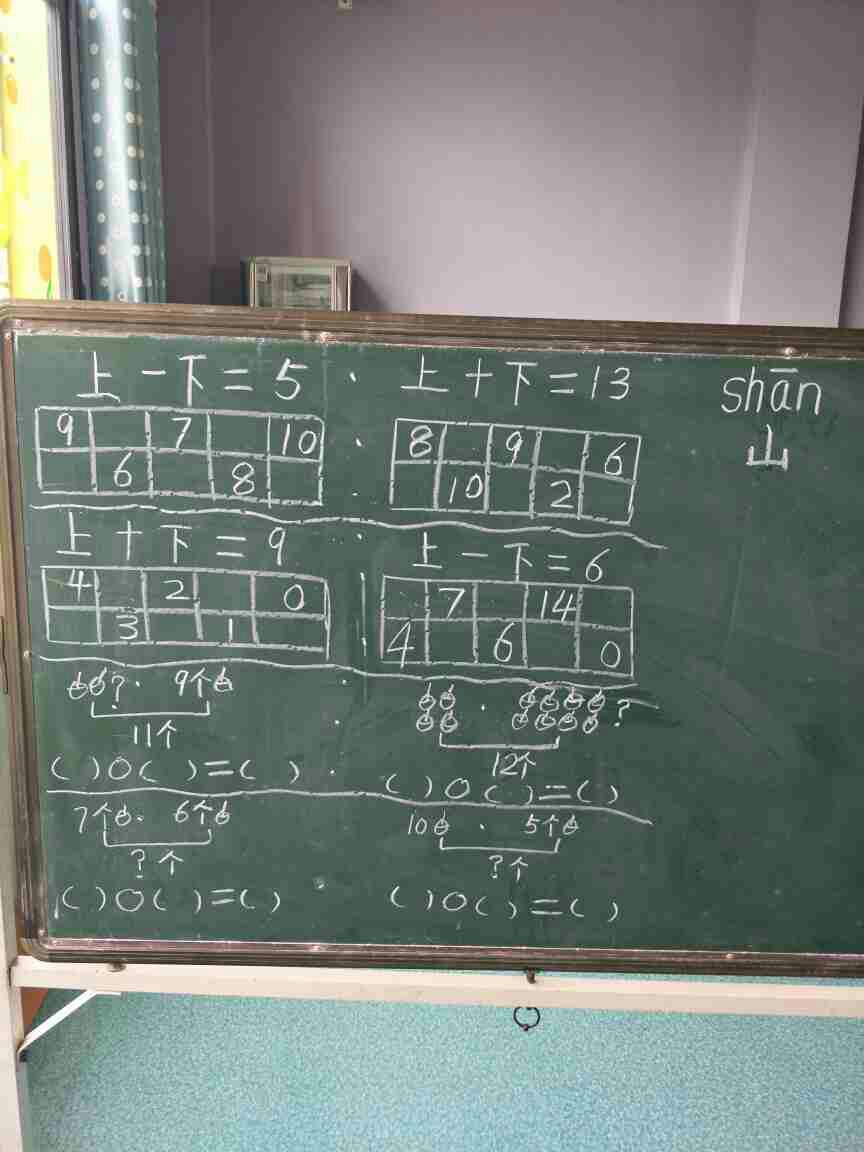 上－下＝5 · 上＋下＝13 shān
9 7 10 · 8 9 6 山
6 8 · 10 2
上＋下＝9 · 上－下＝6
4 2 0 7 14
3 1 4 6 0
? · 9个 · · ?
11个 12个
( )○( )=( ) · ( )○( )=( )
7个 · 6个 10 · 5个
? 个 ? 个
( )○( )=( ) · ( )○( )=( )